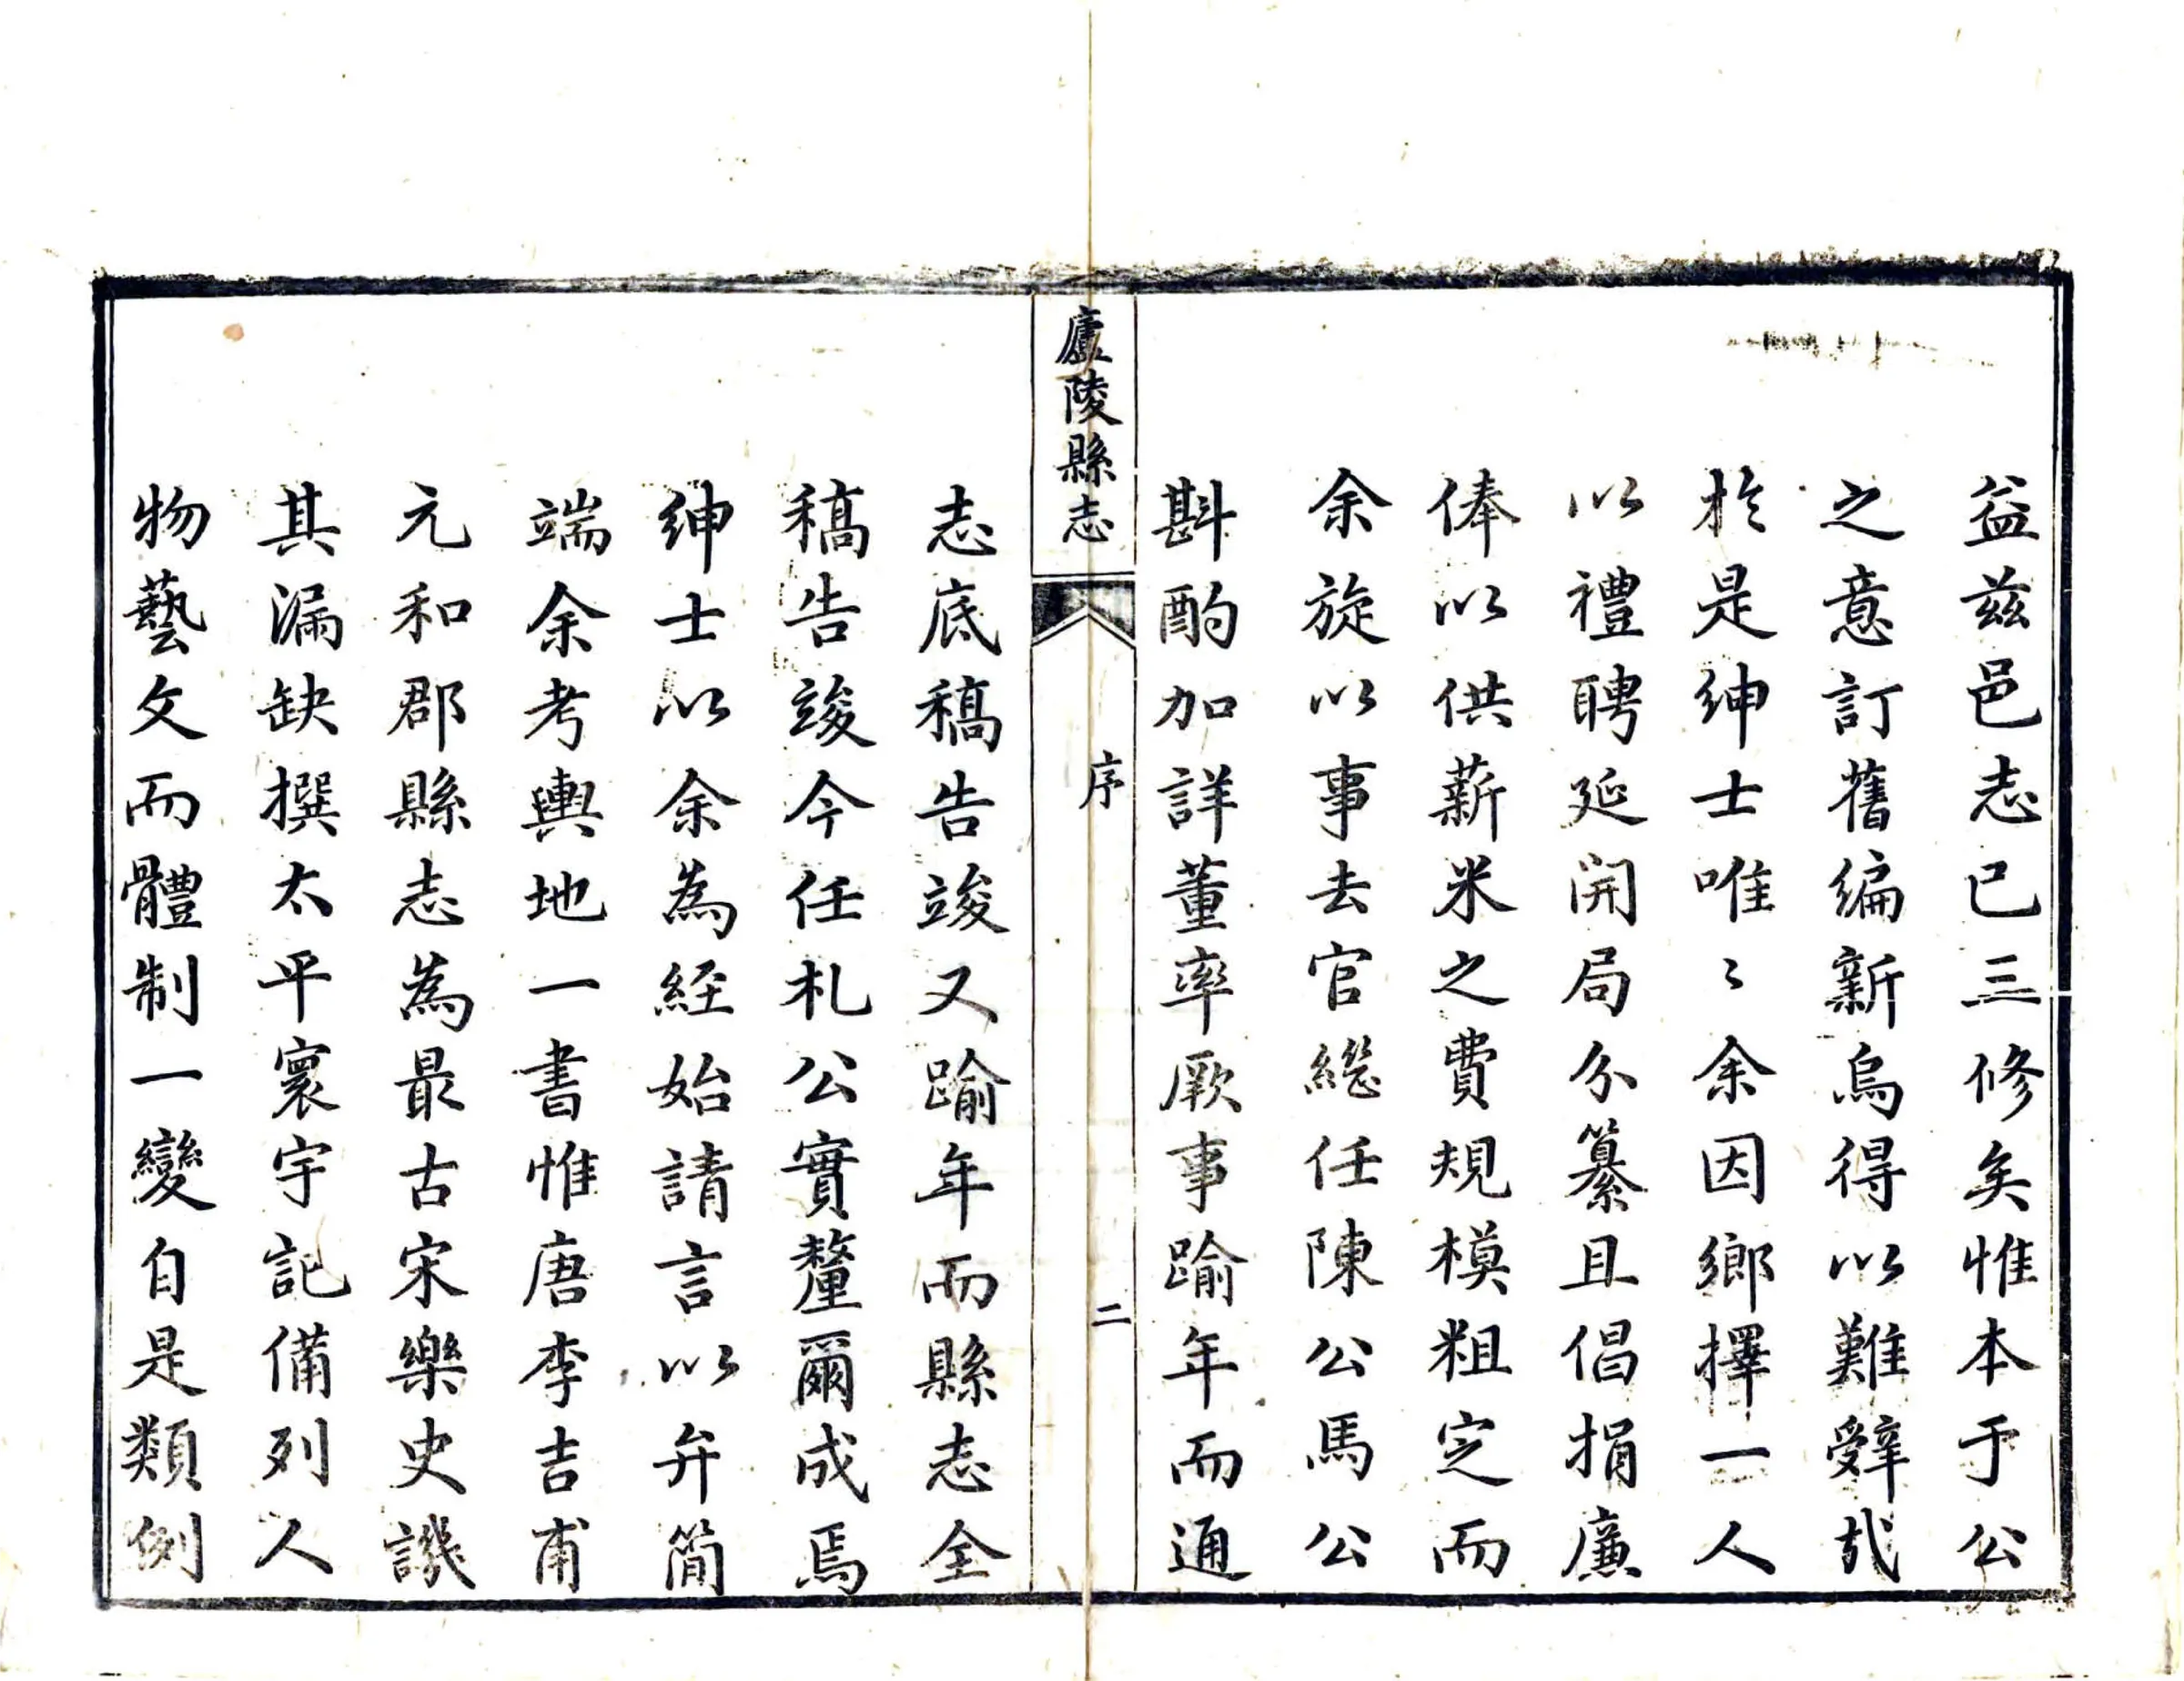 益茲邑志已三修矣惟本于公
之意訂舊編新烏得以難辭哉
於是紳士唯〻余因鄉擇一人
以禮聘延開局分纂且倡捐廉
俸以供薪米之費規模粗定而
余旋以事去官総任陳公馬公
斟酌加詳董率厥事踰年而通
廬陵縣志
序
二
志底稿告竣又踰年而縣志全
稿告竣今任札公實釐爾成焉
紳士以余為経始請言以弁簡
端余考輿地一書惟唐李吉甫
元和郡縣志為最古宋樂史譏
其漏缺撰太平寰宇記備列人
物藝文而體制一變自是類例